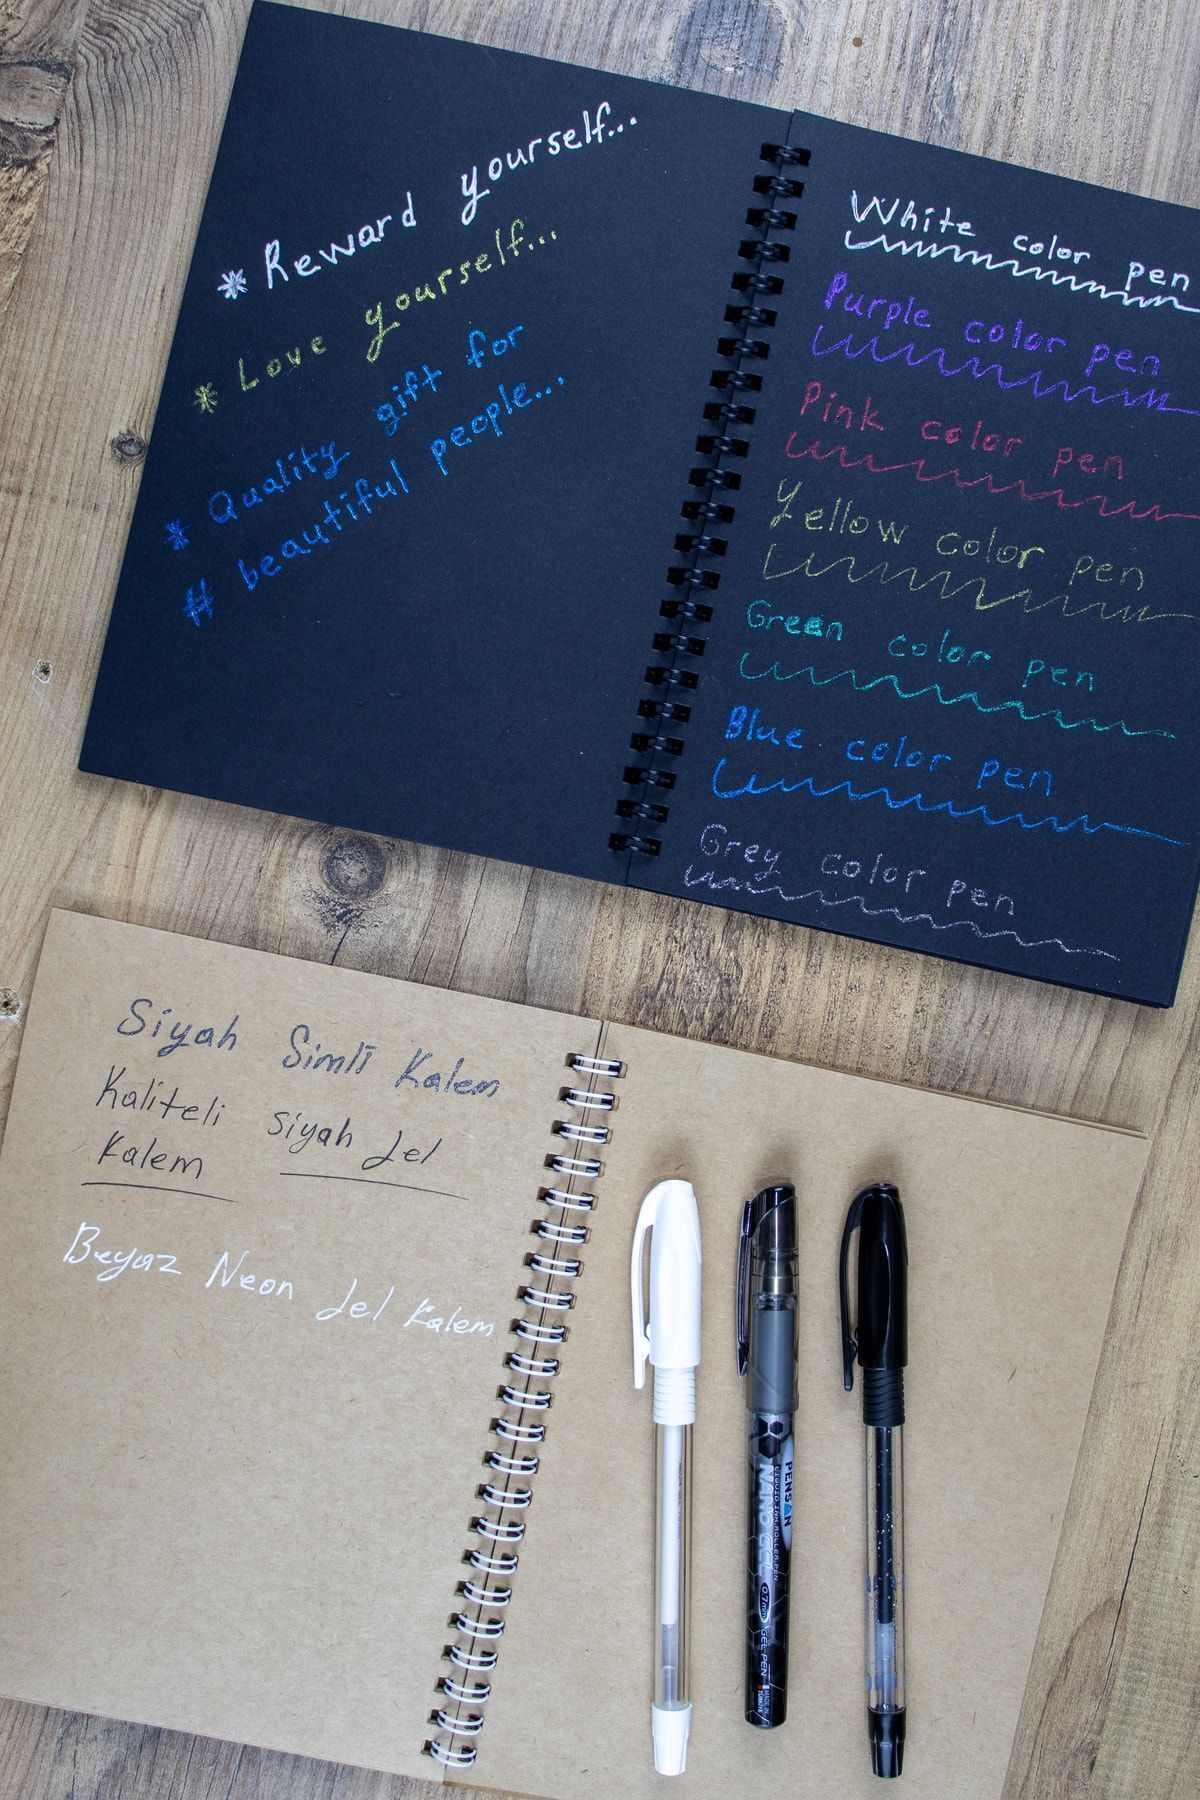 * Reward yourself...
* Love yourself...
* Quality gift for
# beautiful people...
White color pen
Purple color pen
Pink color pen
Yellow color pen
Green color pen
Blue color pen
Grey color pen
Siyah Simli Kalem
Kaliteli Siyah Jel
Kalem
Beyaz Neon Jel Kalem
PENSAN
LIQUID INK ROLLER PEN
NANO GEL
0.7 mm GEL PEN
MADE IN
TÜRKİYE